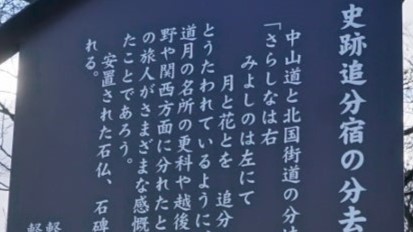 史跡追分宿の分去
中山道と北国街道の分
「さらしなは右
みよしのは左にて
月と花とを 追分
とうたわれているように
道月の名所の更科や越後
野や関西方面に分れたと
の旅人がさまざまな感慨
たことであろう。
安置された石仏、石碑
れる。
軽